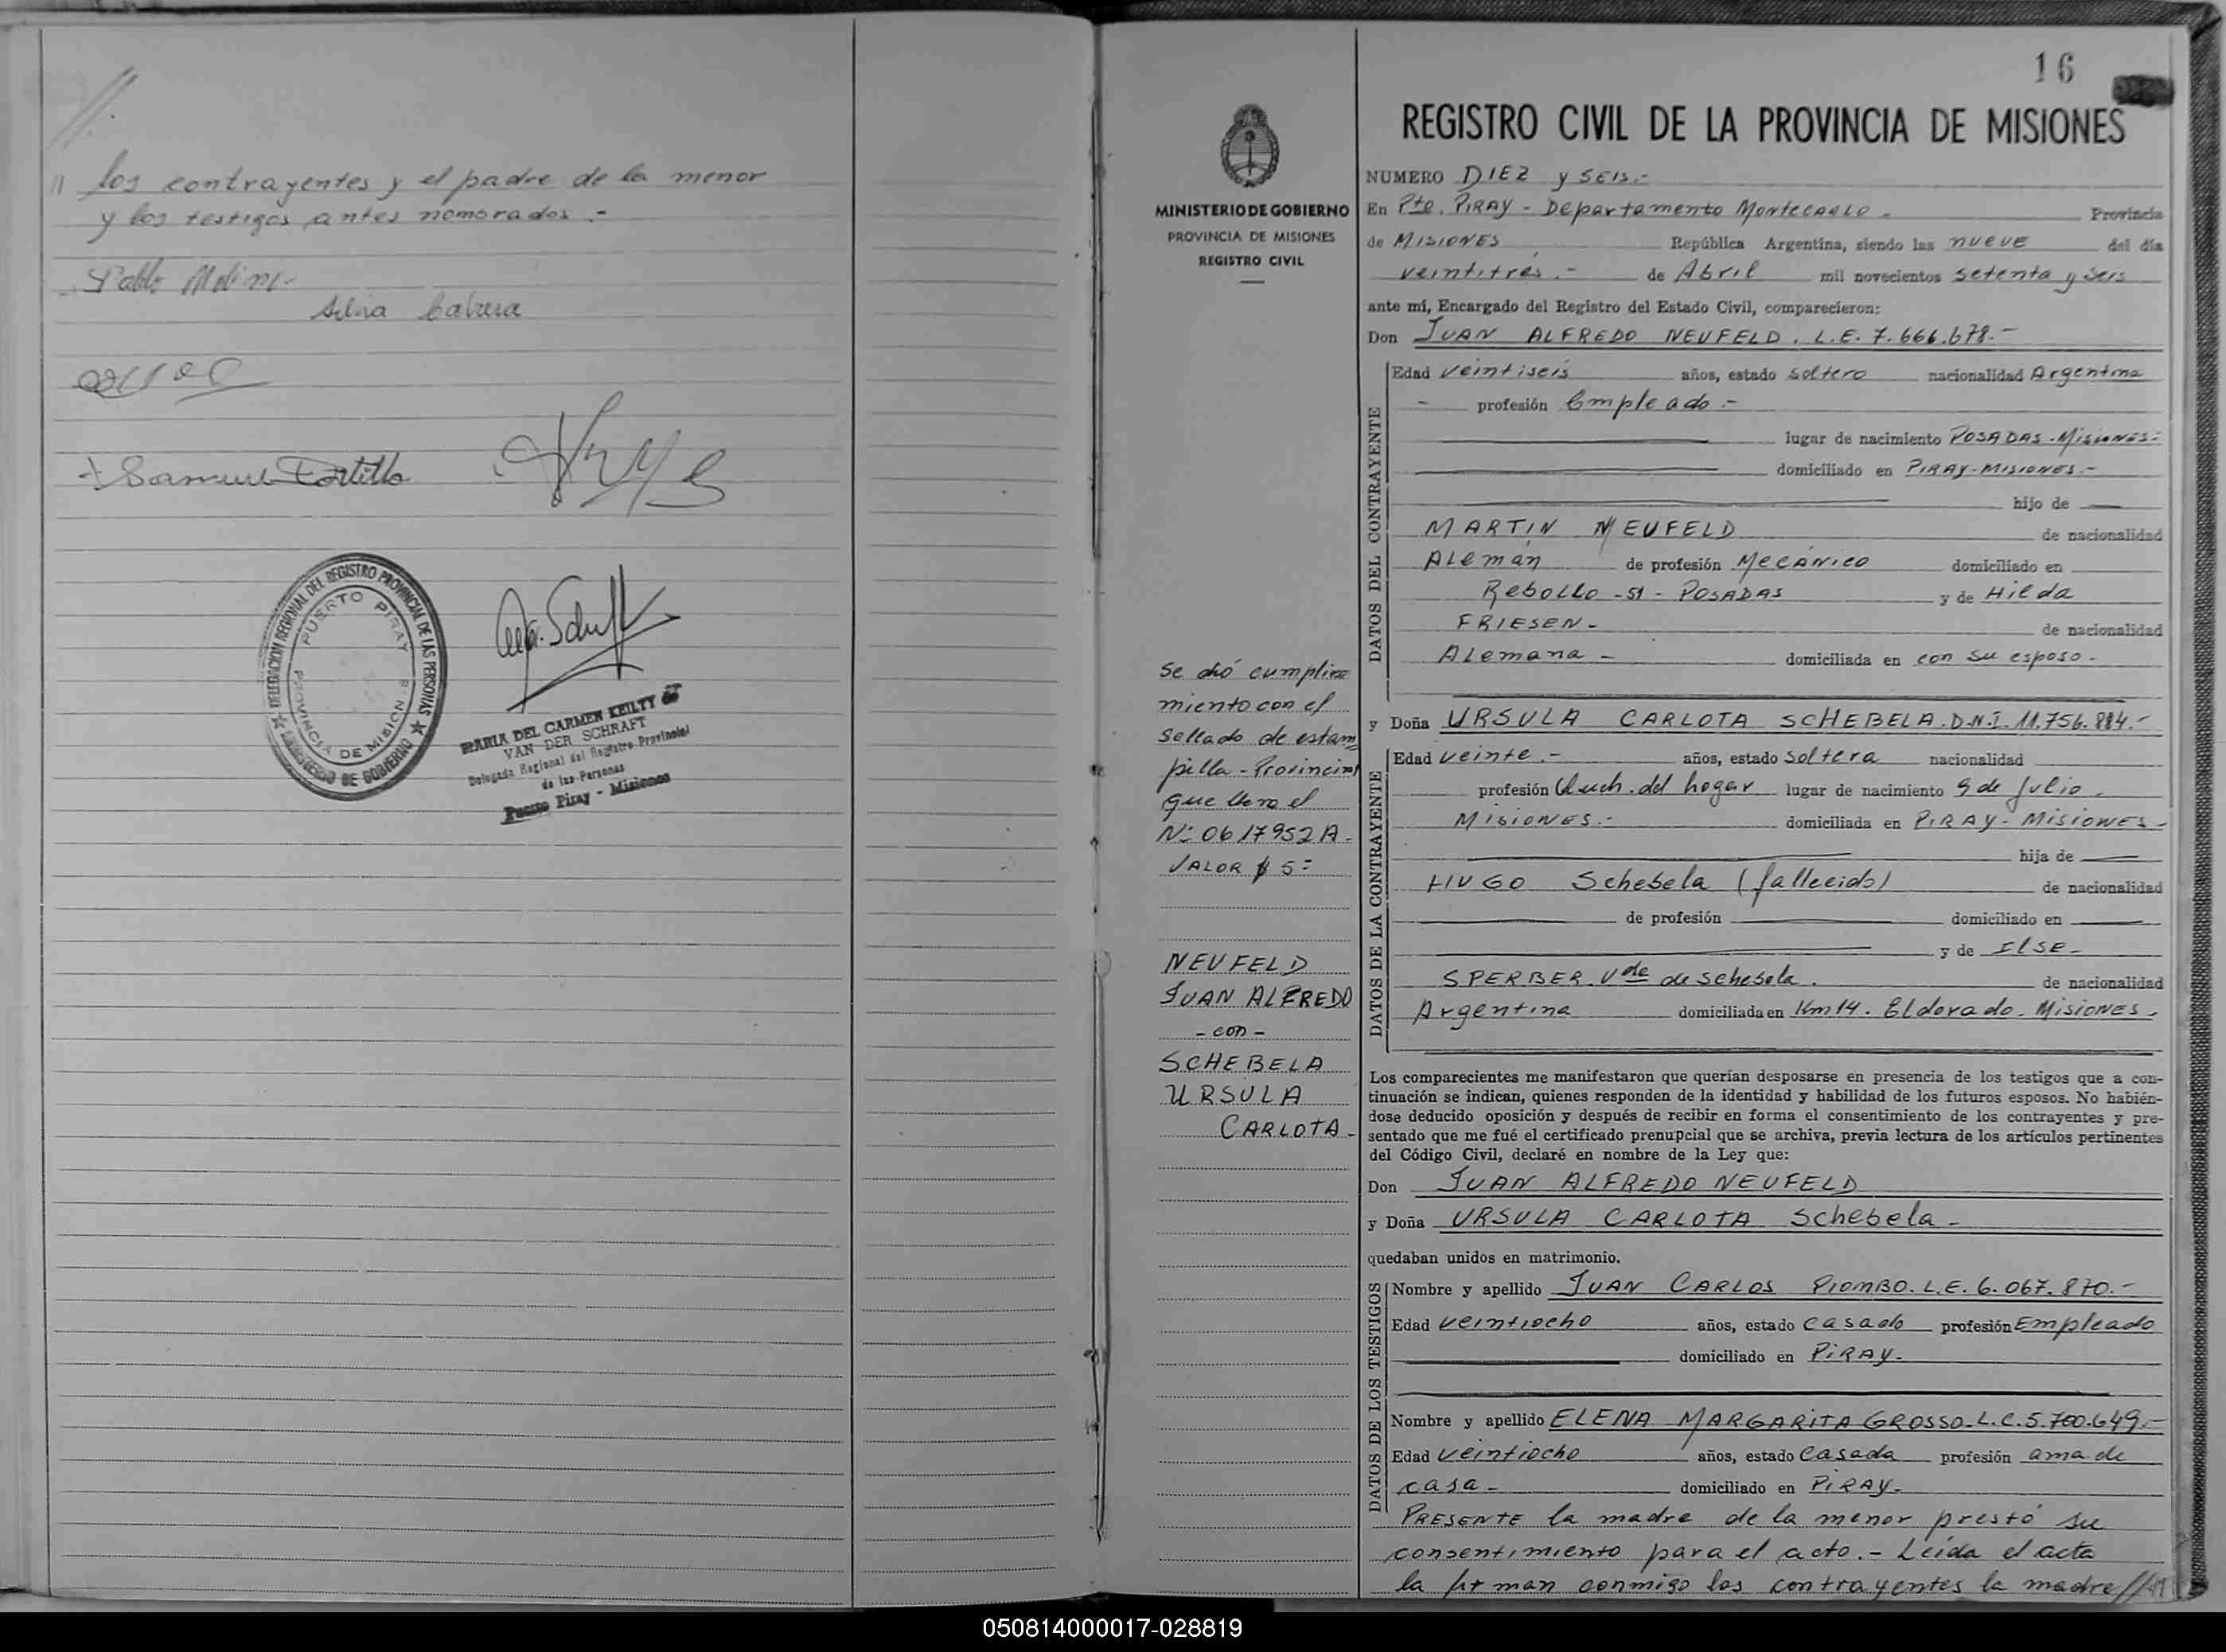 // los contrayentes y el padre de la menor
y los testigos antes nombrados.-
Silvia Cabrera
MINISTERIO DE GOBIERNO
DELEGACION REGIONAL DEL REGISTRO PROVINCIAL DE LAS PERSONAS
PUERTO PIRAY
PROVINCIA DE MISIONES
MARIA DEL CARMEN KEILTY de
VAN DER SCHRAFT
Delegada Regional del Registro Provincial
de las Personas
Puerto Piray - Misiones
16
MINISTERIO DE GOBIERNO
PROVINCIA DE MISIONES
REGISTRO CIVIL
Se dió cumplim
miento con el
sellado de estam
pilla - Provincial
que lleva el
Nº 0617952 A.
VALOR $ 5=
NEUFELD
JUAN ALFREDO
- con -
SCHEBELA
URSULA
CARLOTA-
REGISTRO CIVIL DE LA PROVINCIA DE MISIONES
NUMERO DIEZ y SEIS.-
En Pto. PIRAY - Departamento MONTECARLO - Provincia
de MISIONES República Argentina, siendo las nueve del día
veintitrés.- de Abril mil novecientos setenta y seis
ante mí, Encargado del Registro del Estado Civil, comparecieron:
Don JUAN ALFREDO NEUFELD. L.E. 7.666.678.-
DATOS DEL CONTRAYENTE
Edad veintiseis años, estado soltero nacionalidad Argentina
- profesión Empleado.-
lugar de nacimiento POSADAS-Misiones-
domiciliado en PIRAY-MISIONES.-
hijo de
MARTIN NEUFELD de nacionalidad
Alemán de profesión Mecánico domiciliado en
Rebollo - 51 - POSADAS y de Hilda
FRIESEN- de nacionalidad
Alemana - domiciliada en con su esposo-
y Doña URSULA CARLOTA SCHEBELA. D.N.I. 11.756.884.-
DATOS DE LA CONTRAYENTE
Edad veinte.- años, estado soltera nacionalidad
profesión Queh. del hogar lugar de nacimiento 9 de Julio-
MISIONES.- domiciliada en PIRAY- MISIONES-
hija de
HUGO Schebela (fallecido) de nacionalidad
de profesión domiciliado en
y de ILSE-
SPERBER. Vda de Schebela. de nacionalidad
Argentina domiciliada en Km 14. Eldorado. MISIONES.
Los comparecientes me manifestaron que querían desposarse en presencia de los testigos que a con-
tinuación se indican, quienes responden de la identidad y habilidad de los futuros esposos. No habién-
dose deducido oposición y después de recibir en forma el consentimiento de los contrayentes y pre-
sentado que me fué el certificado prenupcial que se archiva, previa lectura de los artículos pertinentes
del Código Civil, declaré en nombre de la Ley que:
Don JUAN ALFREDO NEUFELD
y Doña URSULA CARLOTA Schebela-
quedaban unidos en matrimonio.
DATOS DE LOS TESTIGOS
Nombre y apellido JUAN CARLOS PIOMBO. L.E. 6.067.870.-
Edad veintiocho años, estado casado profesión Empleado
domiciliado en PIRAY-
Nombre y apellido ELENA MARGARITA GROSSO-L.C. 5.700.649.-
Edad veintiocho años, estado Casada profesión ama de
casa- domiciliado en PIRAY-
PRESENTE la madre de la menor prestó su
consentimiento para el acto.- Leída el acta
la firman conmigo los contrayentes la madre //
050814000017-028819